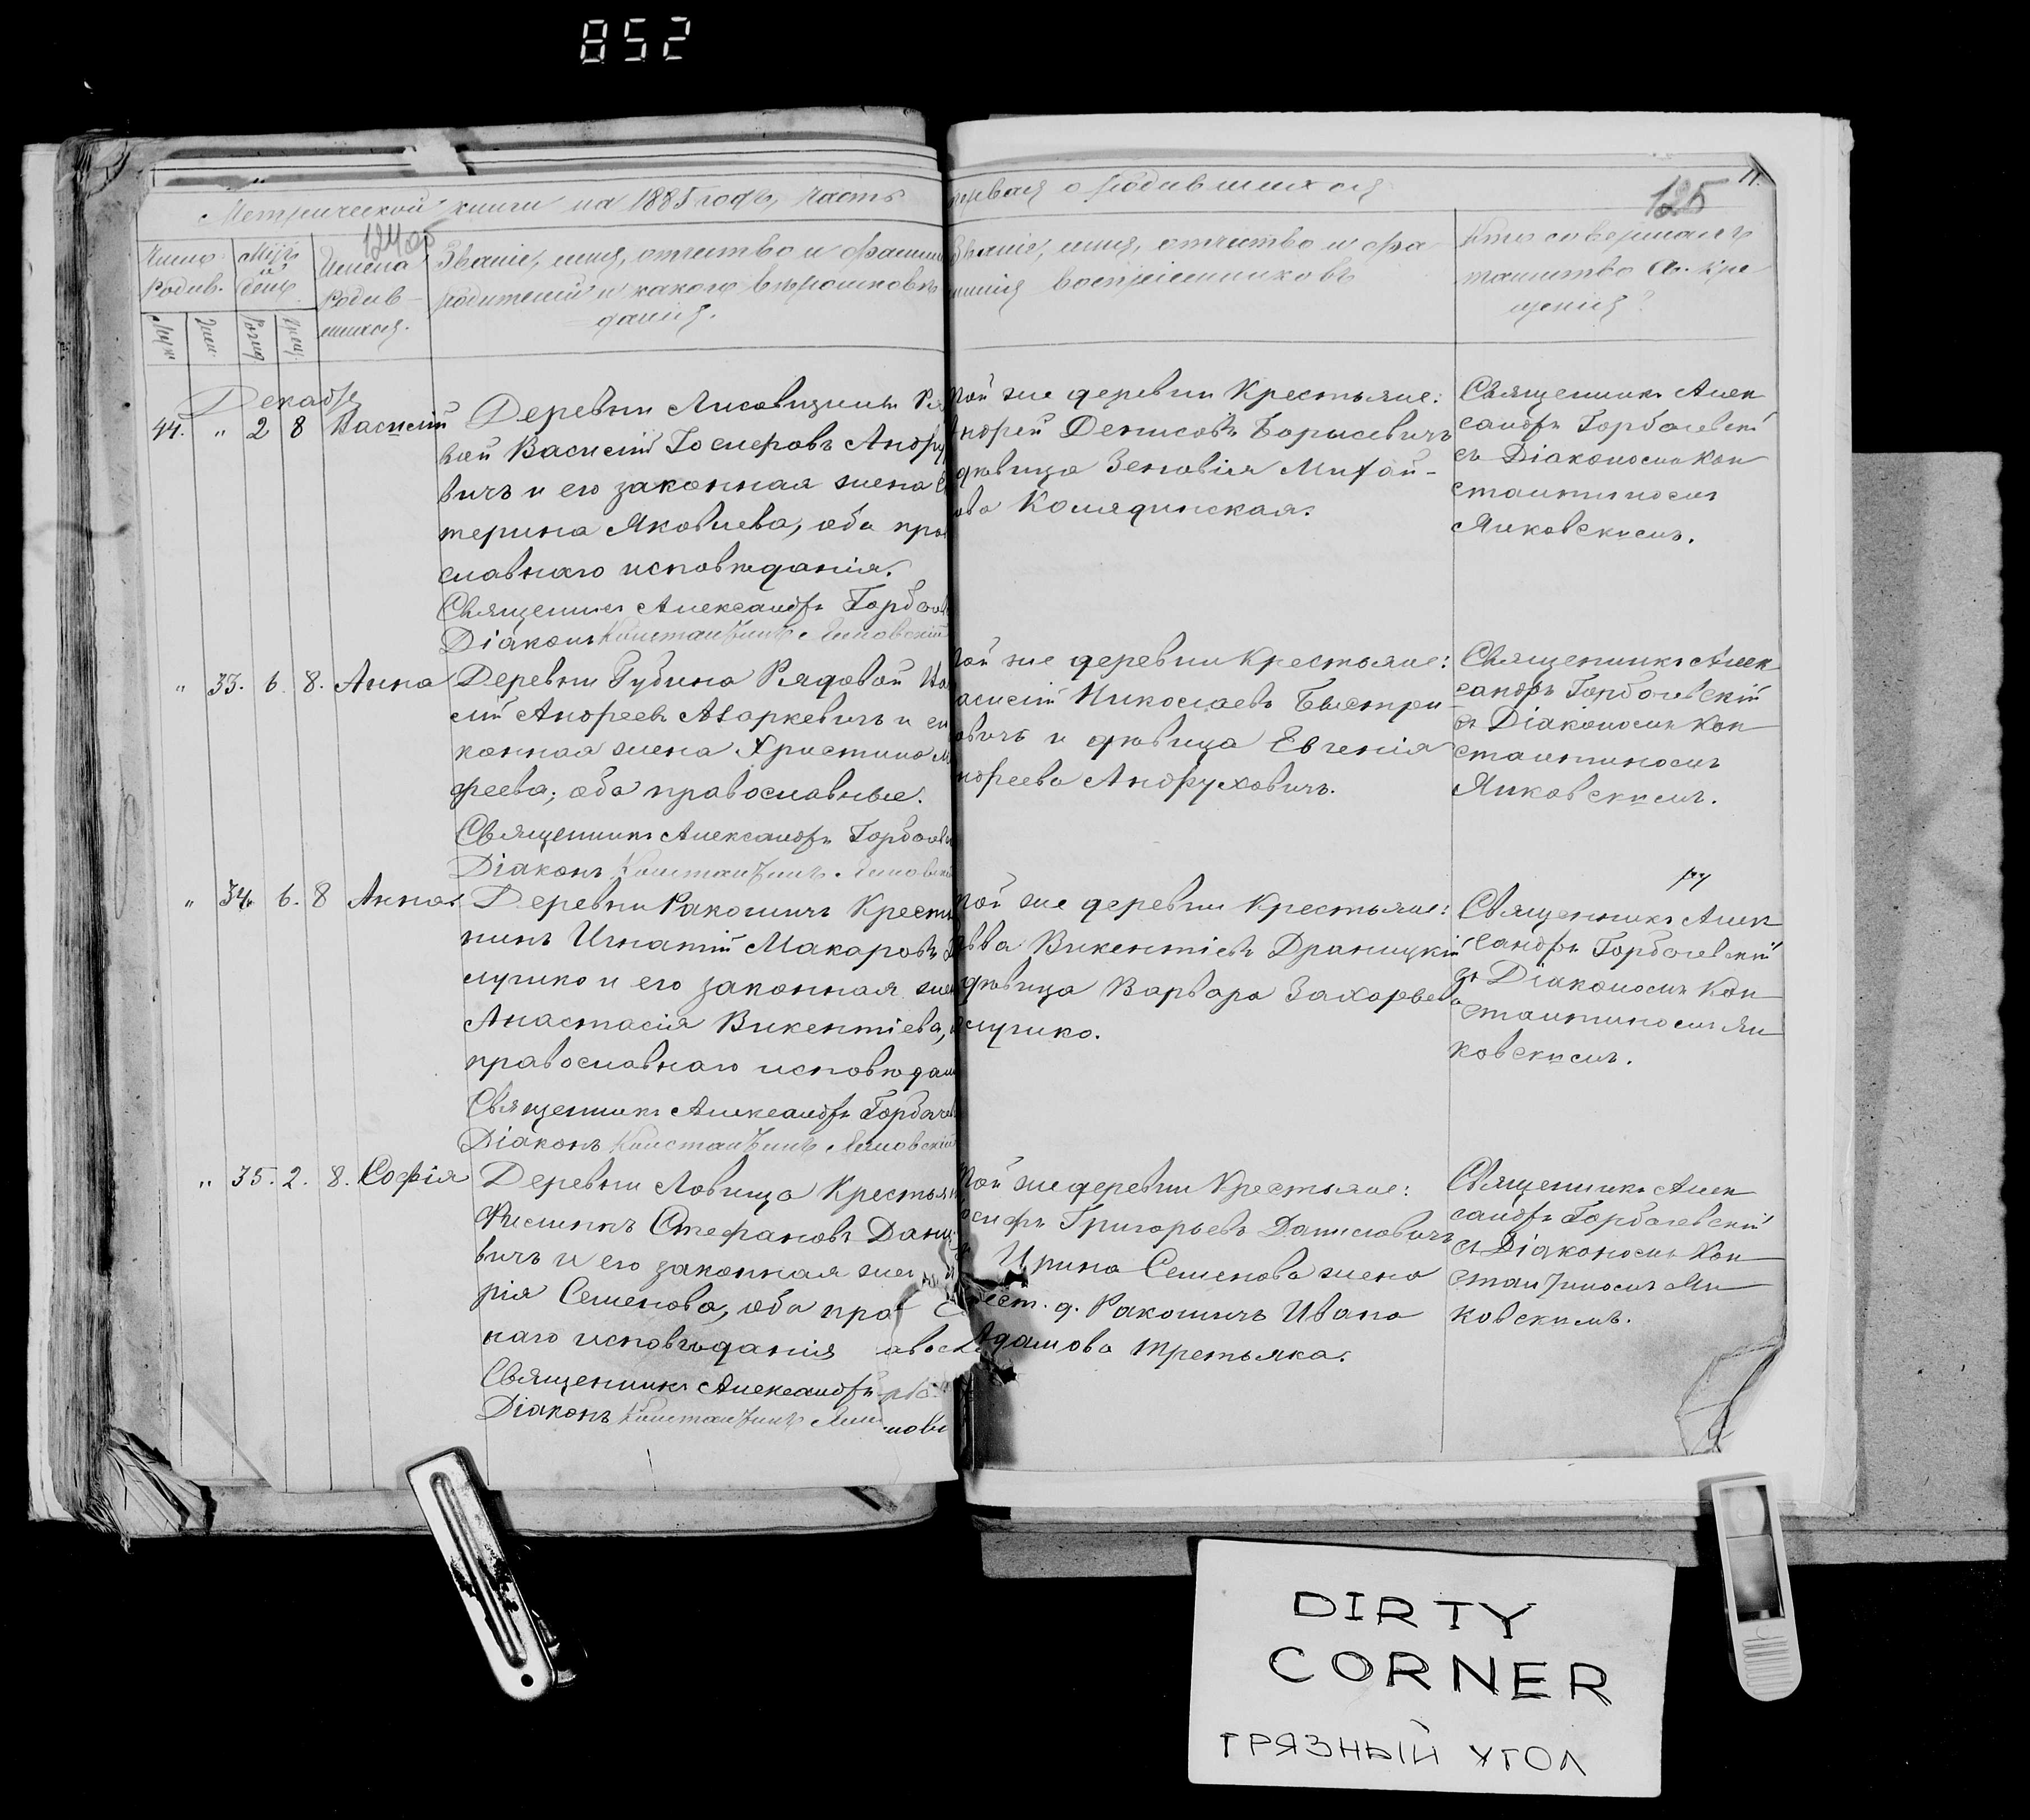 852
Метрической книги на 1885 годъ, часть
первая о родившихся
124об
125
Число родив.
Муж.
Жен.
Мѣс. и день
Рожд.
Крещ.
Имена
родив-
шихся.
Званіе, имя, отчество и фамилія
родителей и какого вѣроисповѣ
данія.
Званіе, имя, отчество и фа
милія воспріемниковъ
Кто совершалъ
таинство св. кре
щенія?
Декабр
44. " 2 8 Василій
Деревни Лисовщины Ря
вой Василій Іосифовъ Андру
вичъ и его законная жена Ек
терина Яковлева, оба пра
славнаго исповѣданія.
Священникъ Александръ Горбачев
Діаконъ Константинъ Янковскій
той же деревни Крестьяне:
Андрей Денисовъ Борисевичъ
дѣвица Зеновія Митой-
ова Колядинская.
Священникъ Алек
сандръ Горбачевскій
съ Діакономъ Кон
стантиномъ
Янковскимъ.
" 33. 6. 8. Анна
Деревни Губина Рядовой Ва
лій Андреевъ Азаркевичъ и ег
конная жена Христина М
феева; оба православные.
Священникъ Александръ Горбачев
Діаконъ Константинъ Янковскій
той же деревни Крестьяне:
асилій Николаевъ Быстри
овичъ и дѣвица Евгенія
ндреева Андруховичъ.
Священникъ Алек
сандръ Горбачевскій
съ Діакономъ Кон
стантиномъ
Янковскимъ.
" 34. 6. 8 Анна.
Деревни Ракошичъ Крестья
нинъ Игнатій Макаровъ
лушко и его законная жен
Анастасія Викентіева,
православнаго исповѣдан
Священникъ Александръ Горбачев
Діаконъ Константинъ Янковскій
той же деревни Крестьяне:
авва Викентіевъ Драницкій
дѣвица Варвара Захарьева
лушко.
Священникъ Алек
сандръ Горбачевскій
съ Діакономъ Кон
стантиномъ Ян
ковскимъ.
" 35. 2. 8. Софія
Деревни Ловища Крестьян
Филиппъ Стефановъ Дани
вичъ и его законная жен
рія Семенова, оба пра
наго исповѣданія авосл
Священникъ Александръ
Діаконъ Константинъ Ян
новс
той же деревни Крестьяне:
осифъ Григорьевъ Даниловичъ
Ирина Семенова жена
рест. д. Ракошичъ Ивана
Адамова Третьяка.
Священникъ Алек
сандръ Горбачевскій
съ Діакономъ Кон
стантиномъ Ян
ковскимъ.
DIRTY
CORNER
ГРЯЗНЫЙ УГОЛ